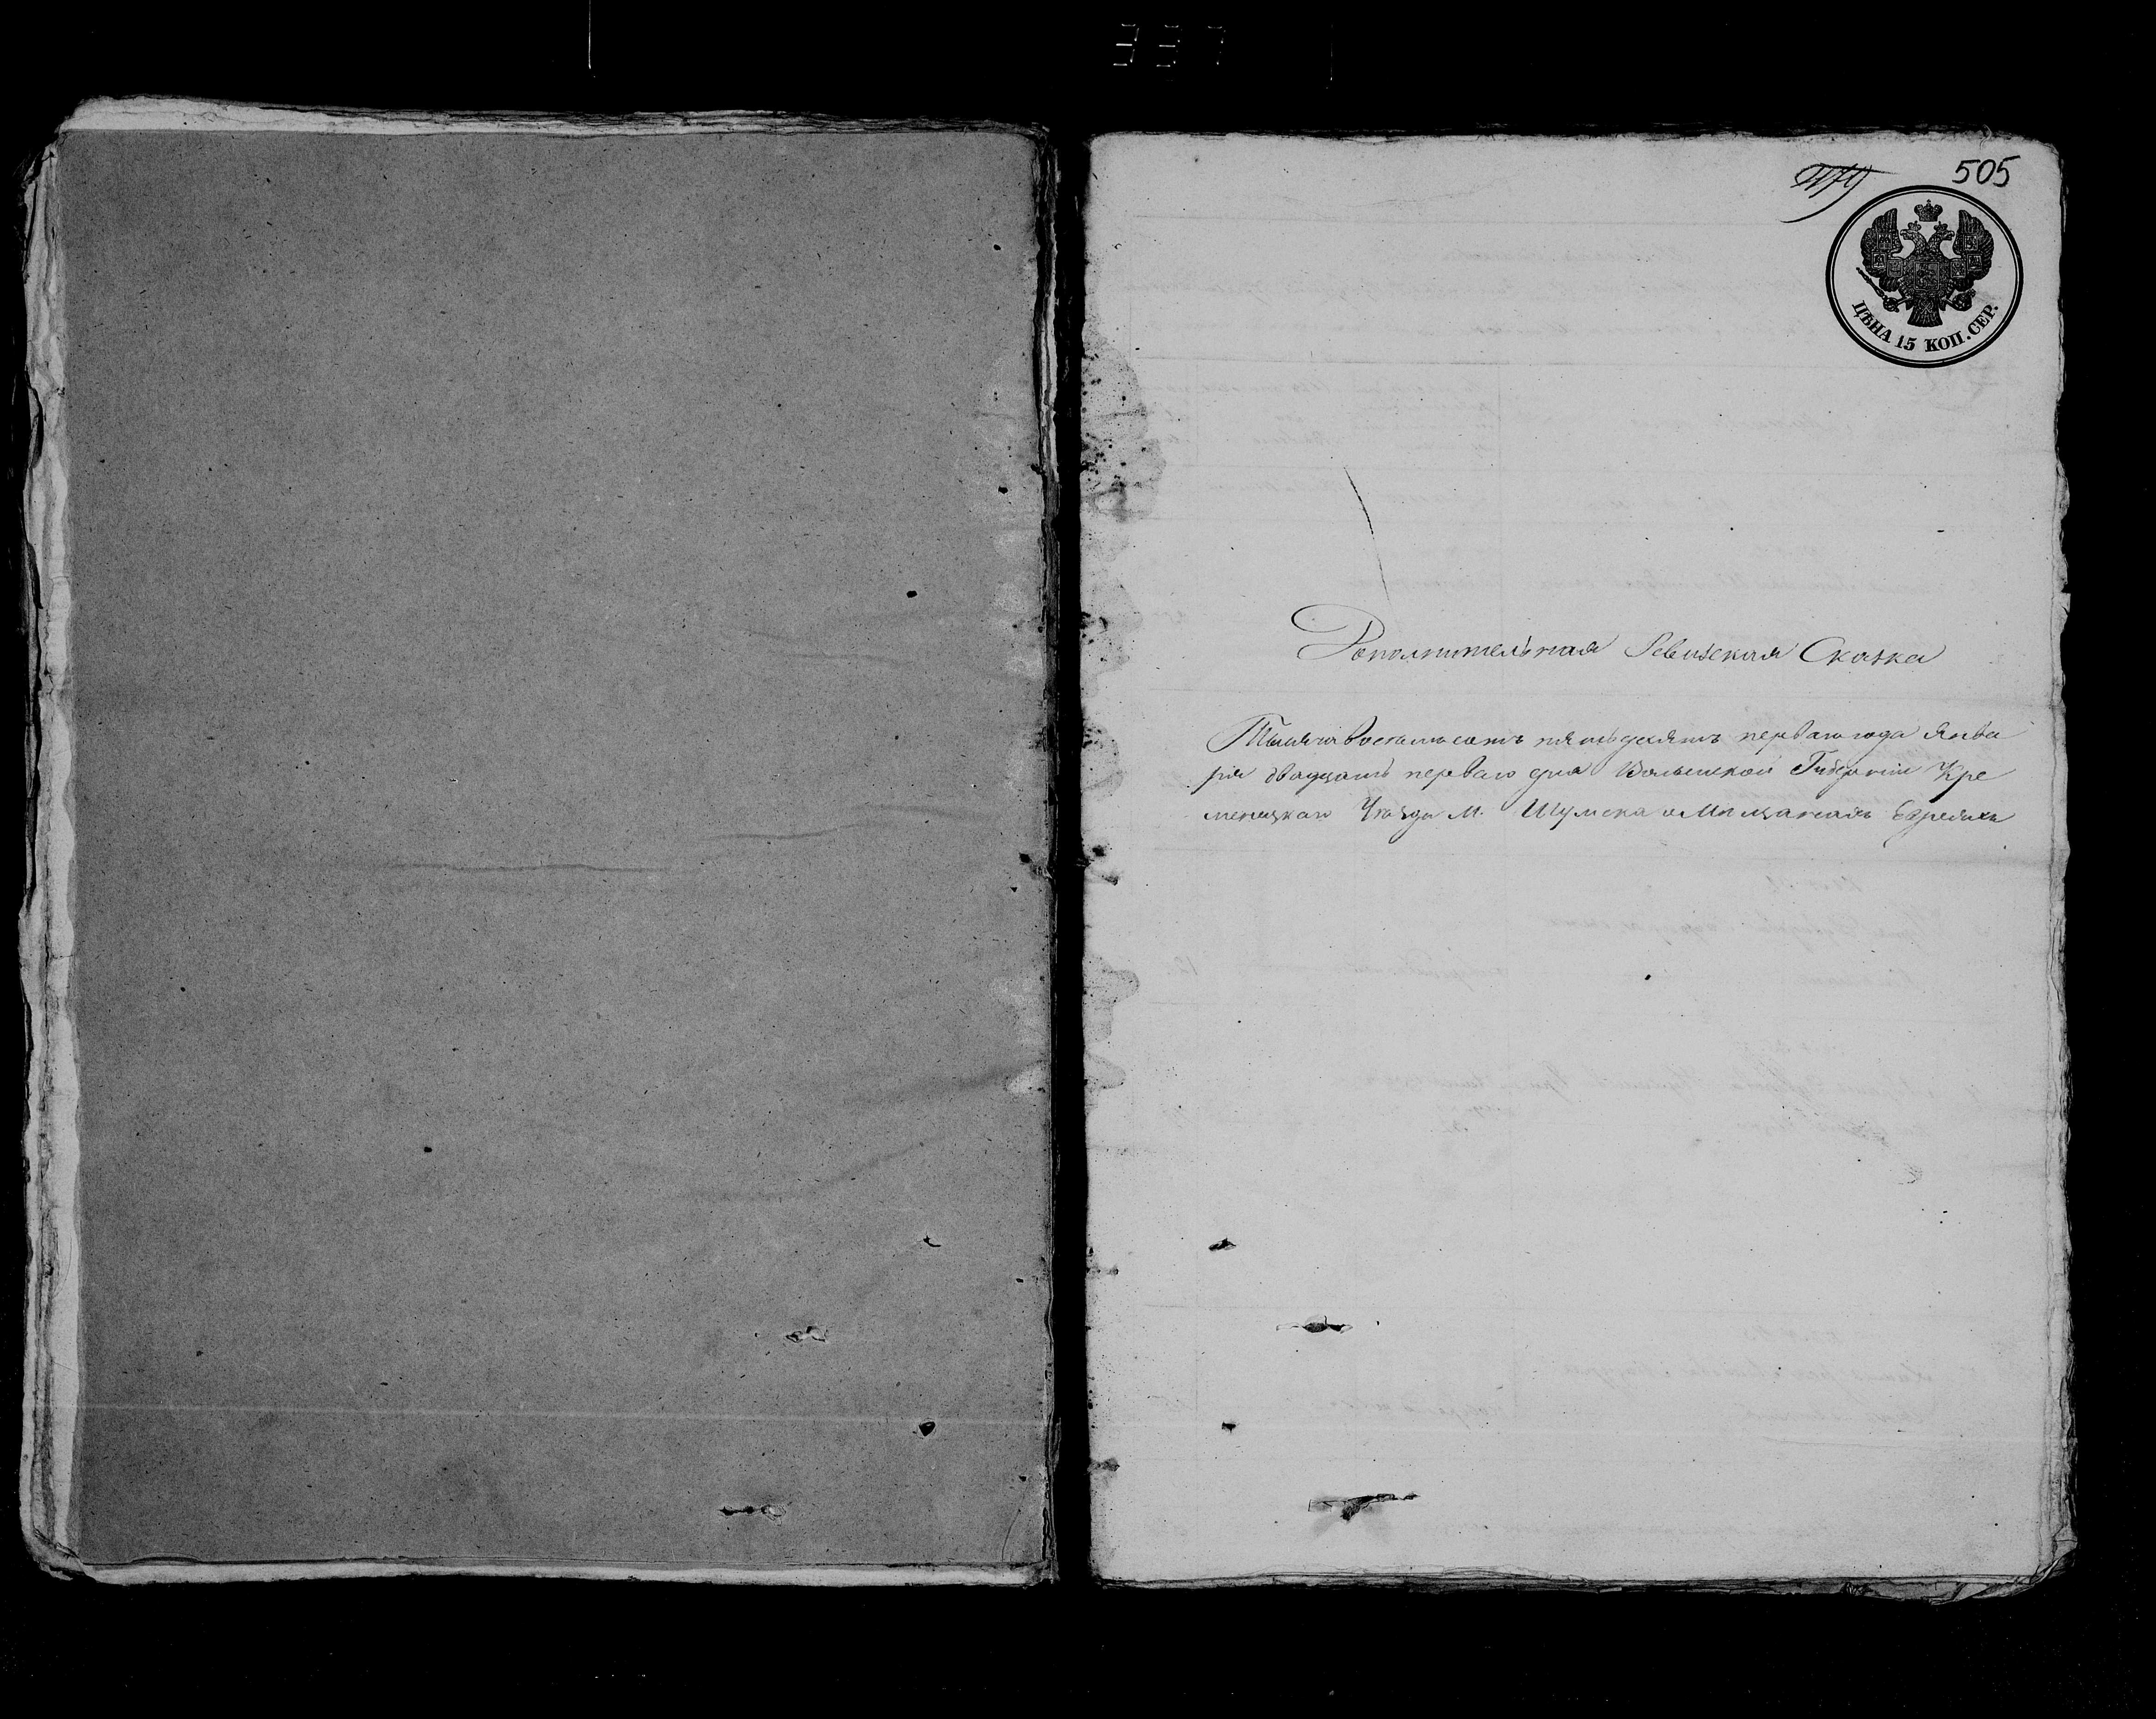 337
505
ЦѢНА 15 КОП. СЕР.
Дополнительная Ревизская Сказка
Тысяча восемьсотъ пятьдесятъ перваго года Янва
ря двадцать перваго дня Волынской Губернии Кре
менецкаго Уѣзда М. Шумска о Мѣщанахъ Евреяхъ